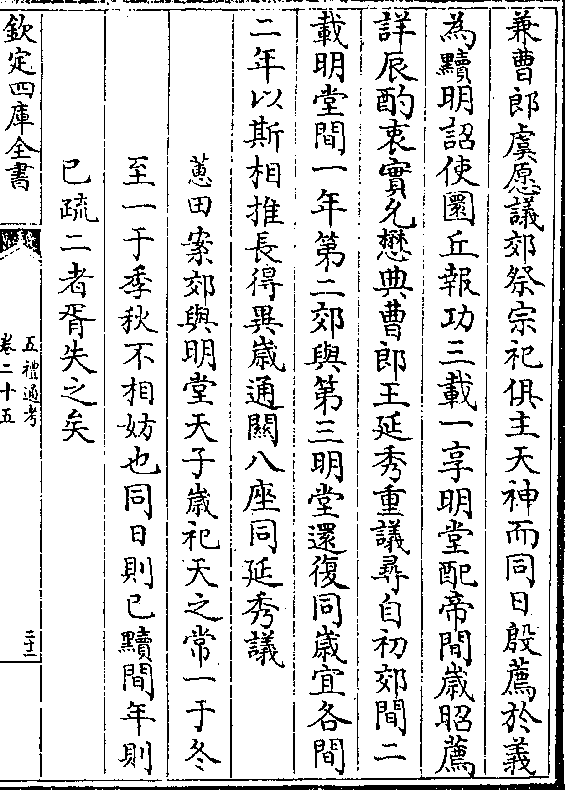 兼曹郎虞愿議郊祭宗祀俱主天神而同日殷薦於義
為黷明詔使圜丘報功三載一享明堂配帝間歲昭薦
詳辰酌衷實允懋典曹郎王延秀重議尋自初郊間二
載明堂間一年第二郊與第三明堂還復同歲宜各間
二年以斯相推長得異歲通關八座同延秀議
蕙田案郊與明堂天子歲祀天之常一于冬
至一于季秋不相妨也同日則已黷間年則
已疏二者胥失之矣
欽定四庫全書
五禮通考
卷二十五